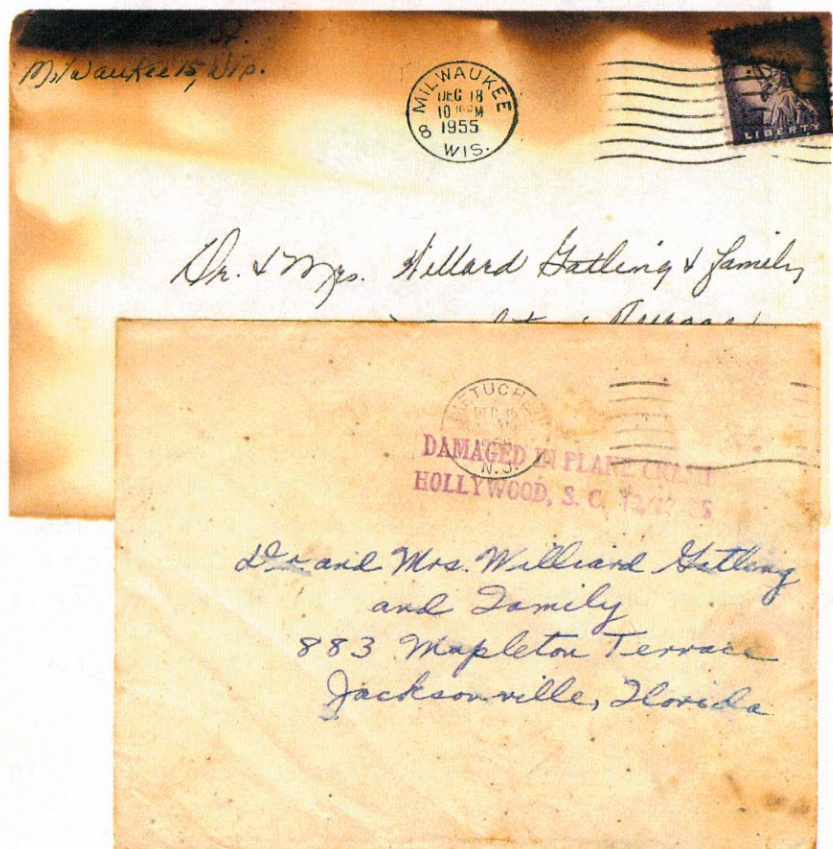 St.
Milwaukee 15, Wis.
MILWAUKEE
DEC 18
10 PM
1955
8 WIS.
LIBERTY
Dr. & Mrs. Willard Gatling & family
METUCHEN
DEC 16
N.J.
DAMAGED IN PLANE CRASH
HOLLYWOOD, S. C.
Dr and Mrs. Williard Gatling
and Family
883 Mapleton Terrace
Jacksonville, Florida